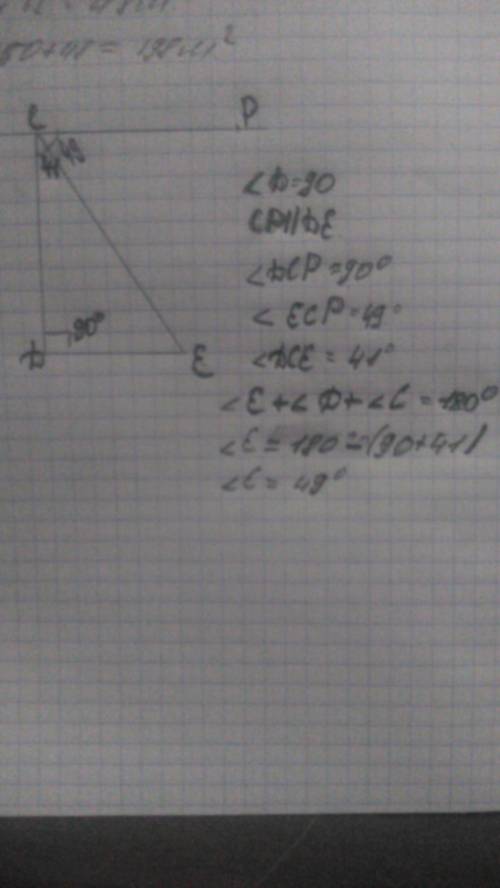 80+48 = 128 м²
C P
41 49
∠D=90
CP||DE
∠DCP=90°
∠ECP=49°
90°
D E
∠DCE = 41°
∠E+∠D+∠C = 180°
∠E = 180-(90+41)
∠E = 49°